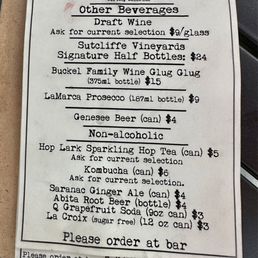 Other Beverages
Draft Wine
Ask for current selection $9/glass
Sutcliffe Vineyards
Signature Half Bottles: $24
Buckel Family Wine Glug Glug
(375ml bottle) $15
LaMarca Prosecco (187ml bottle) $9
Genesee Beer (can) $4
Non-alcoholic
Hop Lark Sparkling Hop Tea (can) $5
Ask for current selection.
Kombucha (can) $6
Ask for current selection.
Saranac Ginger Ale (can) $4
Abita Root Beer (bottle) $4
Q Grapefruit Soda (9oz can) $3
La Croix (sugar free) (12 oz can) $3
Please order at bar
Please order at